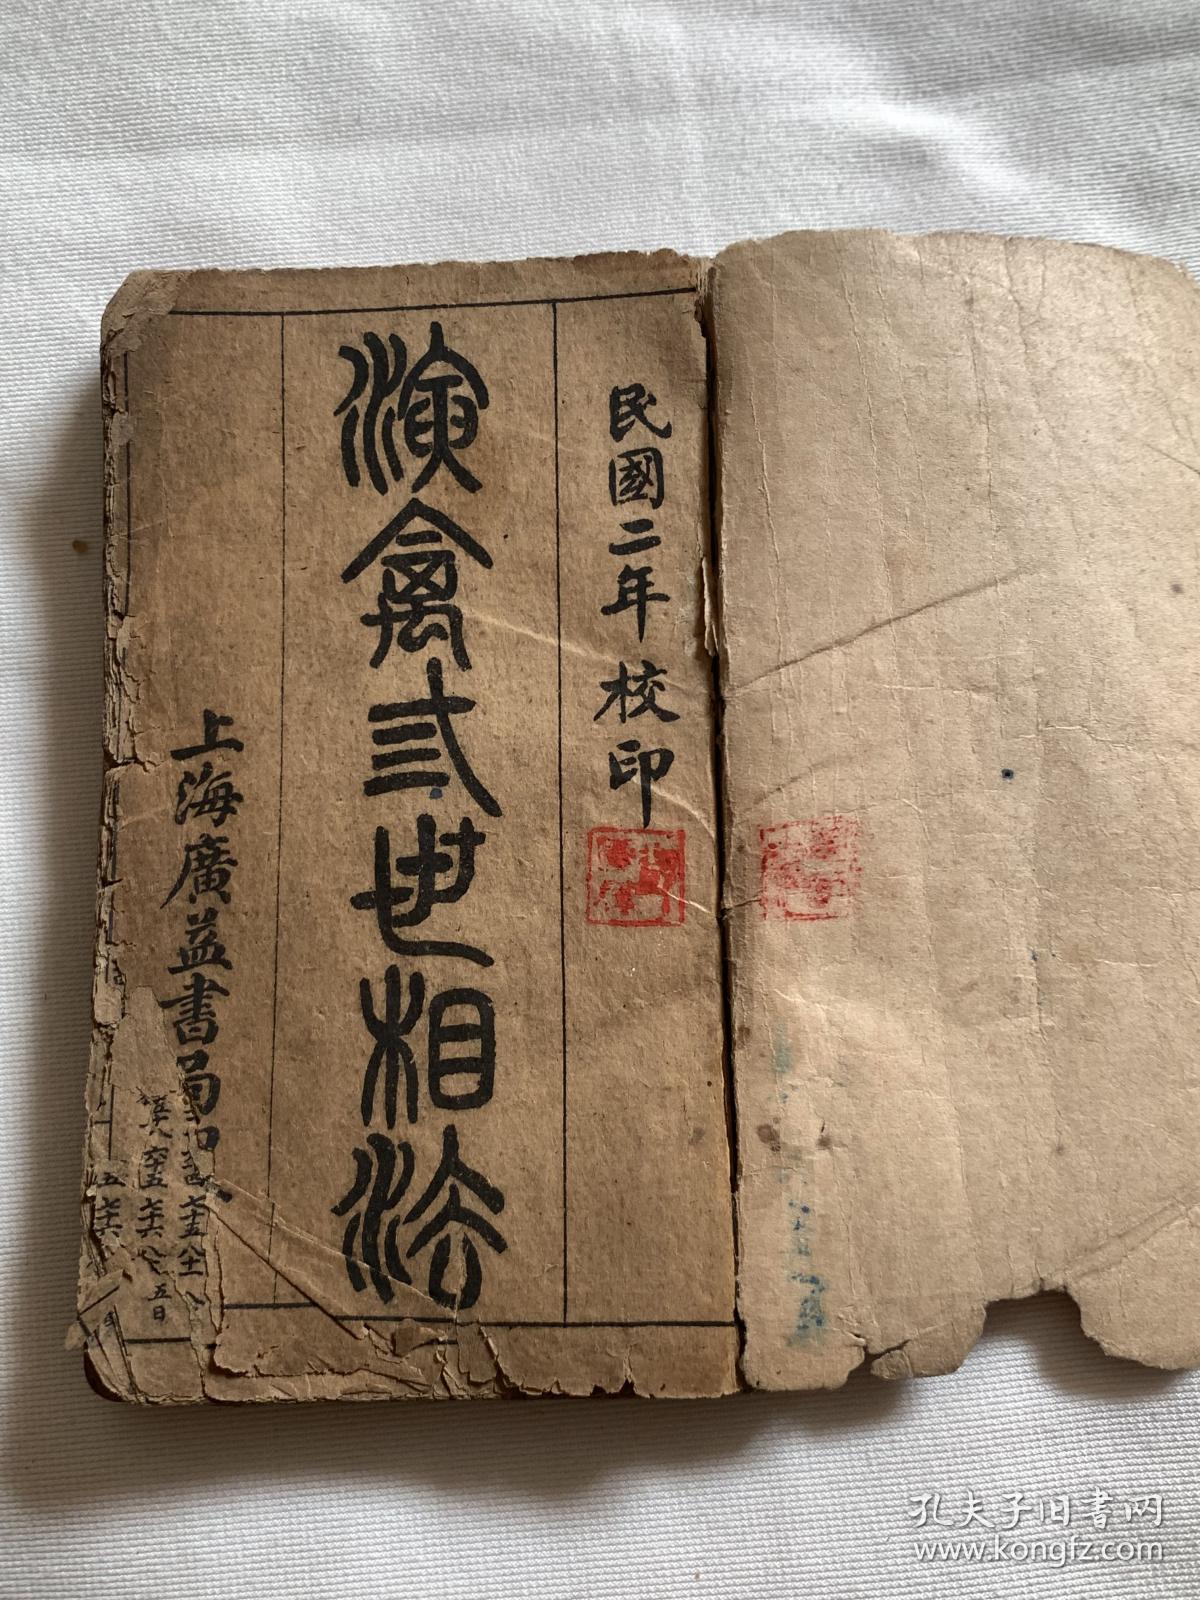 民國二年校印
演禽弎世相法
上海廣益書局印
孔夫子旧书网
www.kongfz.com